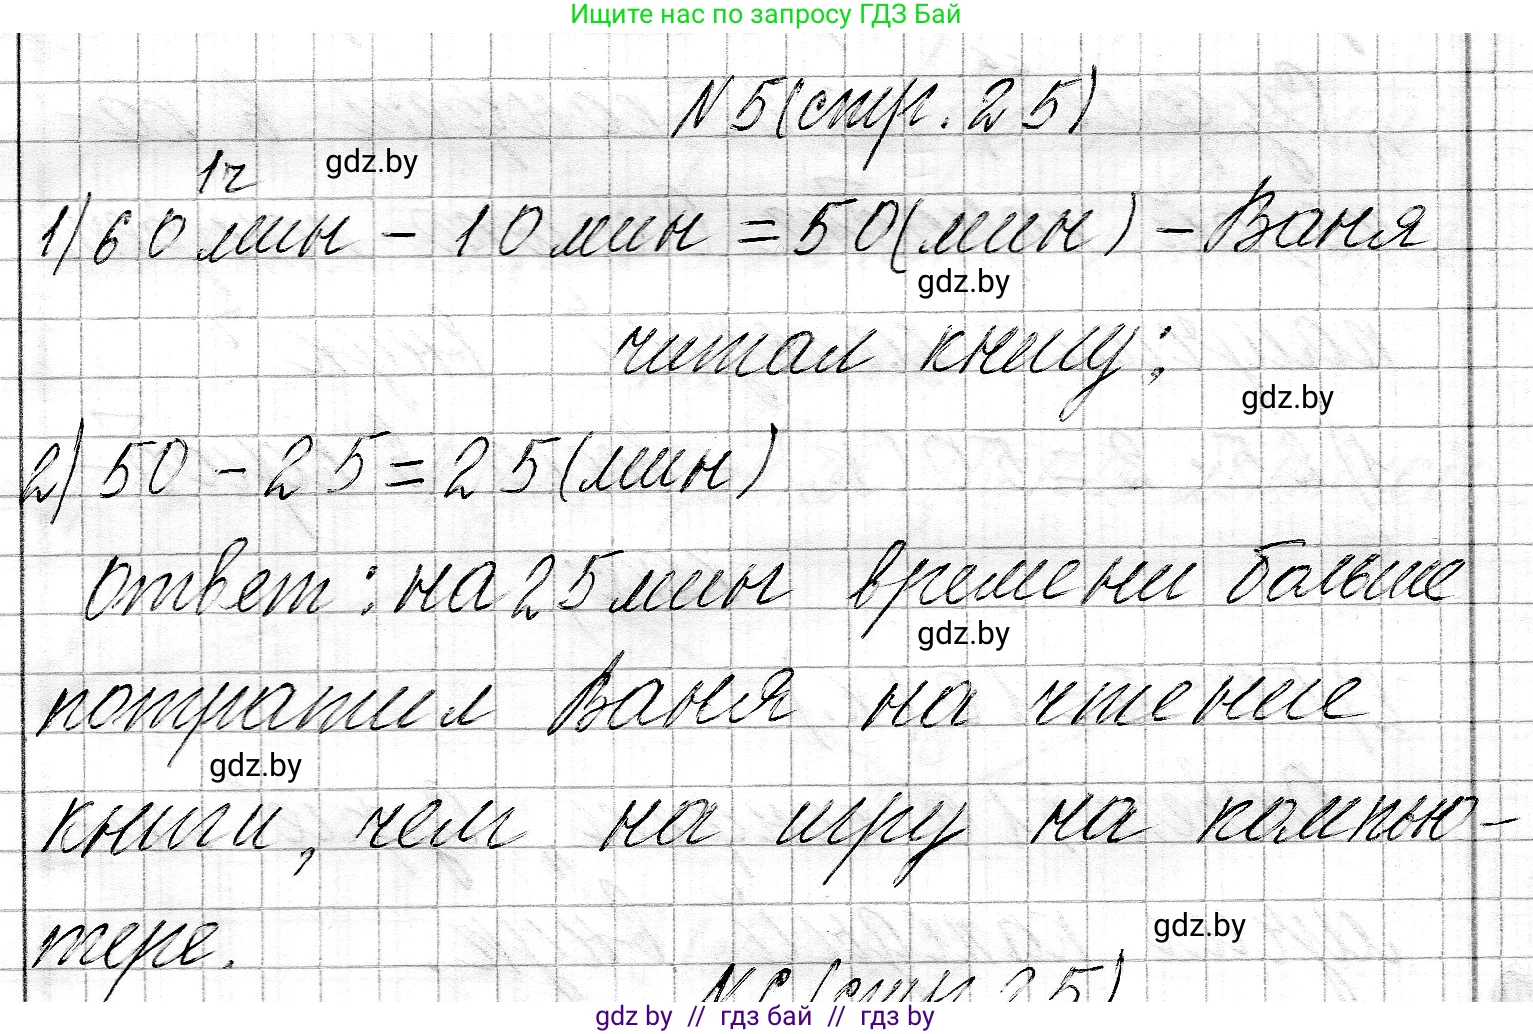 Ищите нас по запросу ГДЗ Бай
N 5 (стр. 25)
1ч gdz.by
1) 60 мин - 10 мин = 50 (мин) - Ваня
gdz.by
читал книгу;
gdz.by
2) 50 - 25 = 25 (мин)
Ответ: на 25 мин времени больше
gdz.by
потратил Ваня на чтение
gdz.by
книги, чем на игру на компью-
тере.
gdz.by
(стр. 25)
gdz by // гдз бай // гдз by